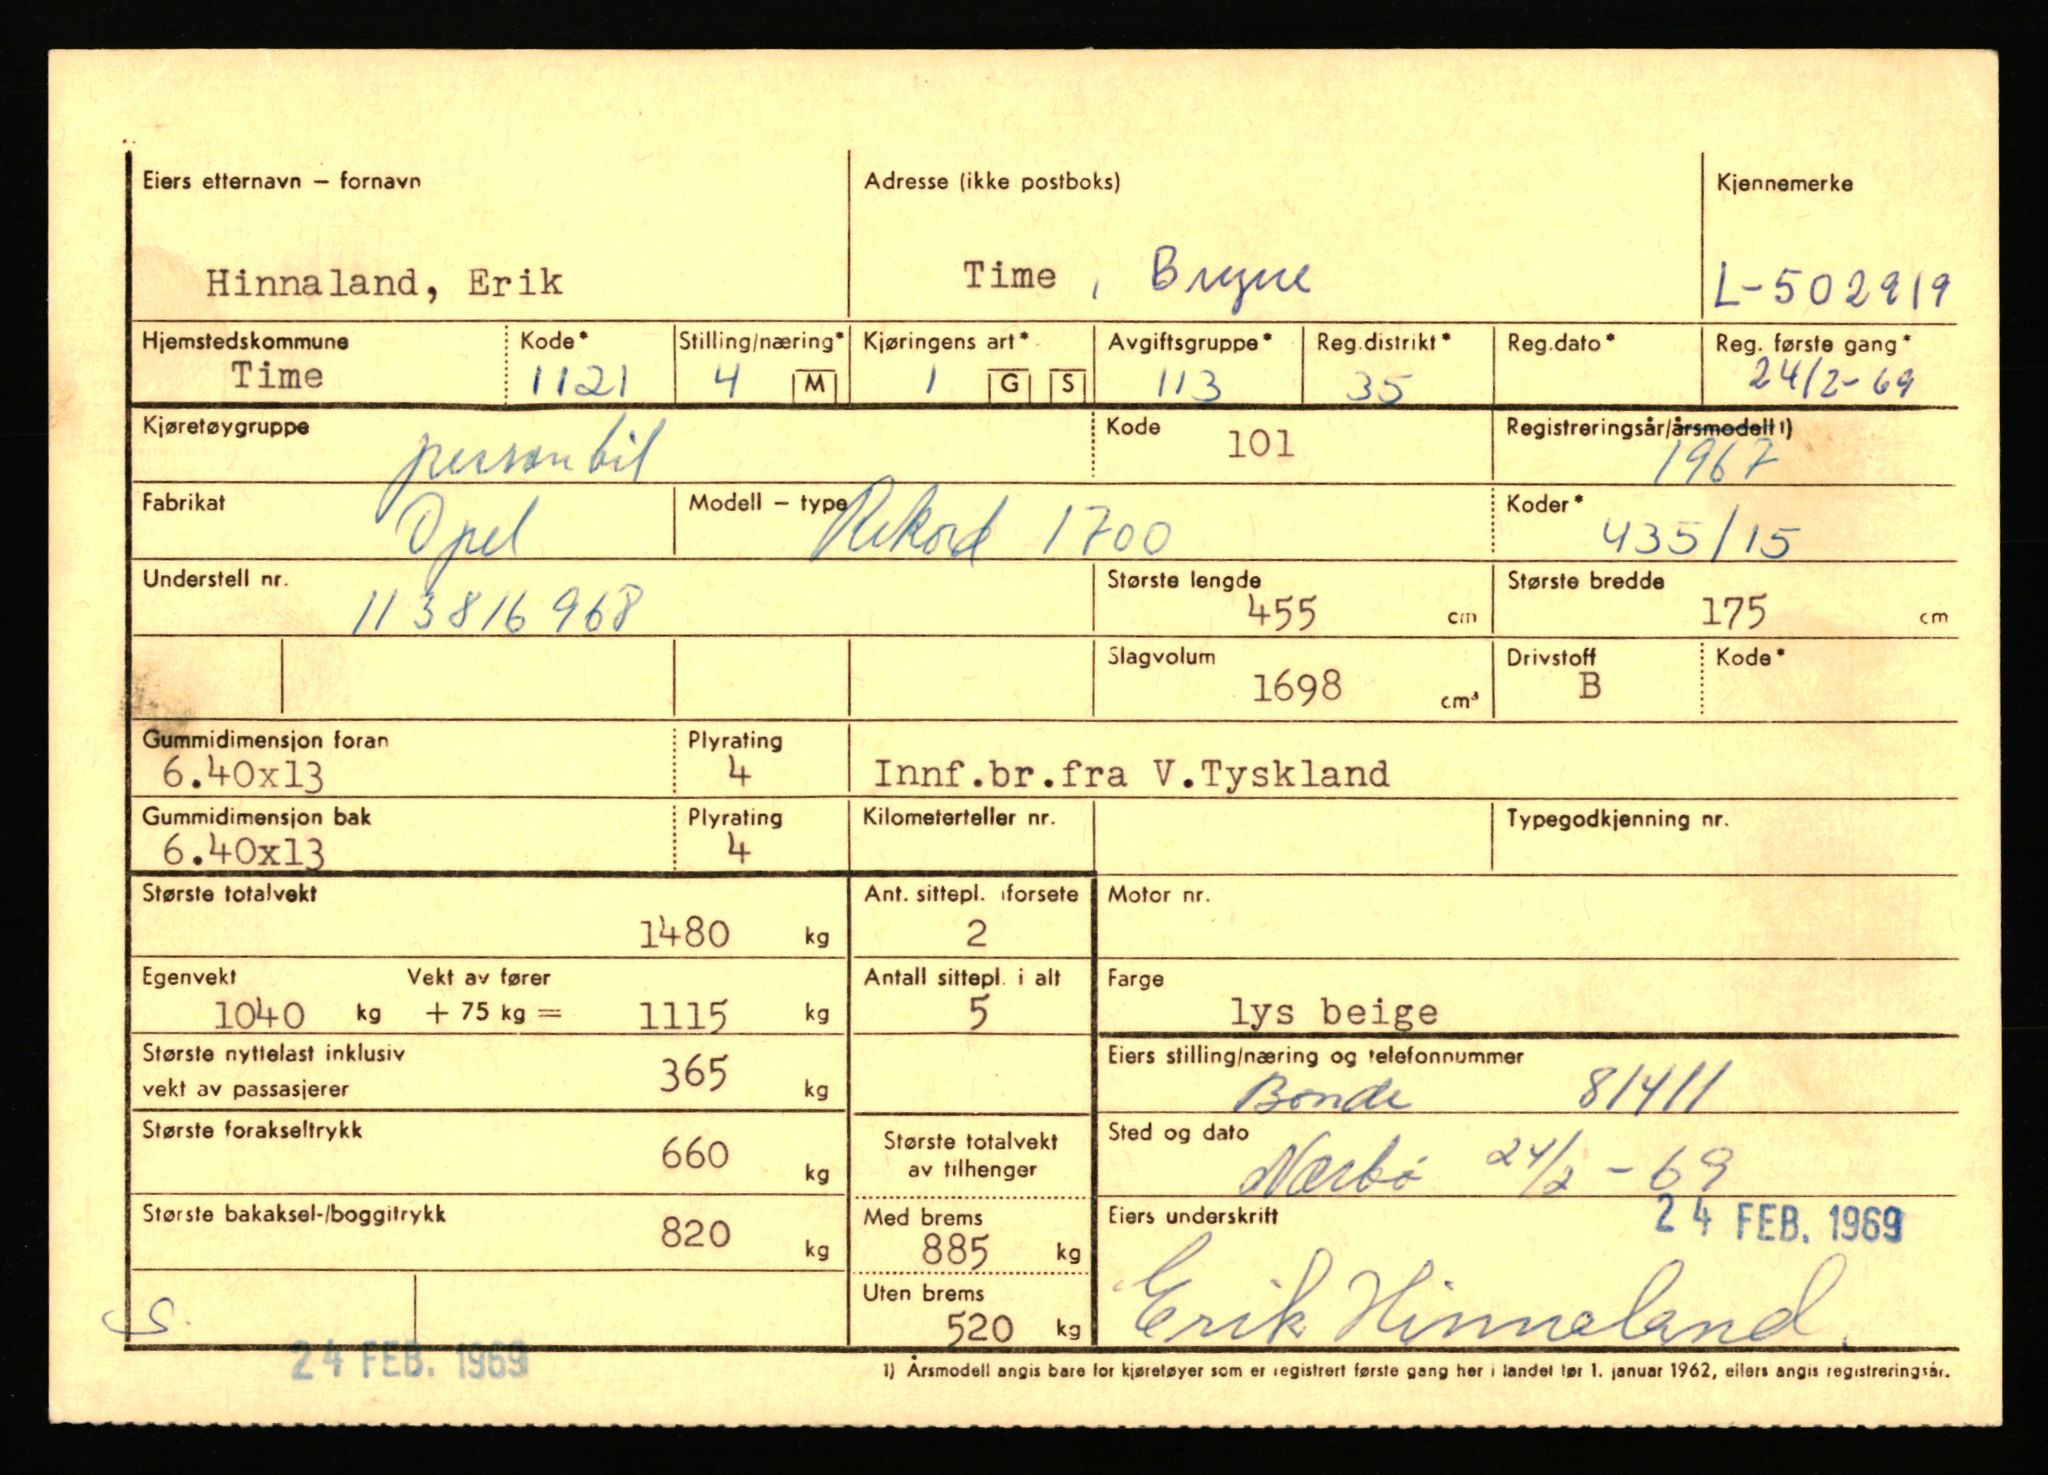 Eiers etternavn – fornavn
Adresse (ikke postboks)
Kjennemerke
Hinnaland, Erik
Time, Bryne
L-502919
Hjemstedskommune
Kode*
Stilling/næring*
Kjøringens art*
Avgiftsgruppe*
Reg.distrikt*
Reg.dato*
Reg. første gang*
Time
1121
4 M
1 G S
113
35
24/2-69
Kjøretøygruppe
personbil
Kode
101
Registreringsår/årsmodell 1)
1967
Fabrikat
Opel
Modell – type
Rekord 1700
Koder*
435/15
Understell nr.
113816968
Største lengde
455 cm
Største bredde
175 cm
Slagvolum
1698 cm³
Drivstoff
B
Kode*
Gummidimensjon foran
6.40x13
Plyrating
4
Innf.br.fra V.Tyskland
Gummidimensjon bak
6.40x13
Plyrating
4
Kilometerteller nr.
Typegodkjenning nr.
Største totalvekt
1480 kg
Ant. sittepl. i forsete
2
Motor nr.
Egenvekt
1040 kg
Vekt av fører
+ 75 kg = 1115 kg
Antall sittepl. i alt
5
Farge
lys beige
Største nyttelast inklusiv
vekt av passasjerer
365 kg
Eiers stilling/næring og telefonnummer
Bonde 81411
Største forakseltrykk
660 kg
Største totalvekt
av tilhenger
Sted og dato
Nærbø 24/2-69
Største bakaksel-/boggitrykk
820 kg
Med brems
885 kg
Eiers underskrift
24 FEB. 1969
Uten brems
520 kg
Erik Hinnaland.
S.
24 FEB. 1969
1) Årsmodell angis bare for kjøretøyer som er registrert første gang her i landet før 1. januar 1962, ellers angis registreringsår.